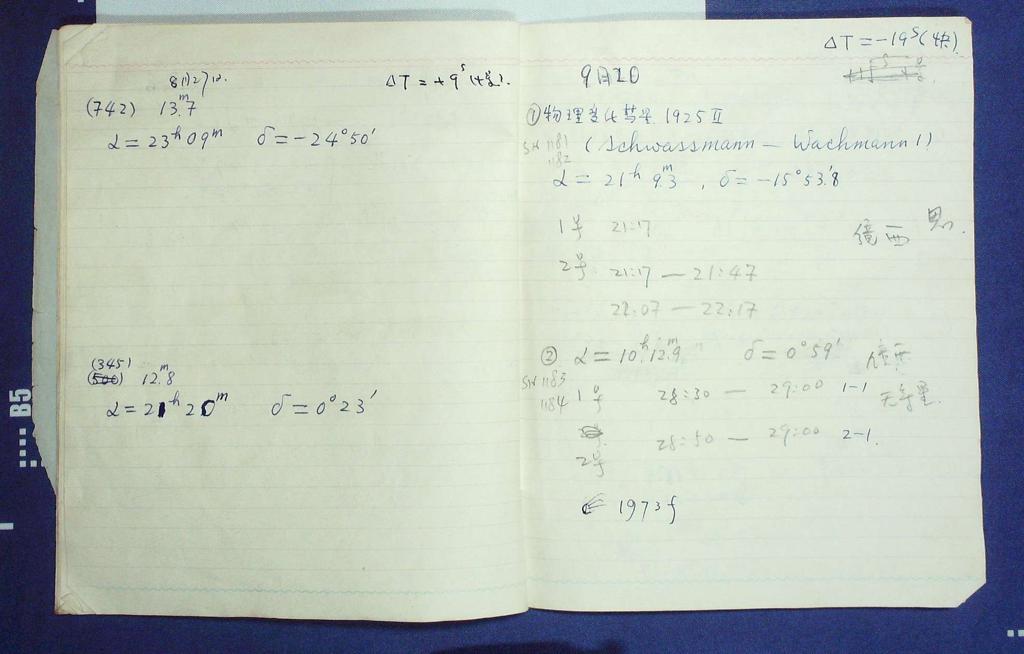 ΔT = +9ˢ
(742) 13ᵐ.7
α = 23ʰ09ᵐ δ = -24°50′
(345)
12ᵐ.8
α = 21ʰ20ᵐ δ = 0°23′
B5
ΔT = -19ˢ (快).
9月20
① 物理变化彗星 1925 Ⅱ
SW 1181 (Schwassmann - Wachmann 1)
1182
α = 21ʰ 9ᵐ.3 , δ = -15°53′.8
1号 21:17
镜西
2号 21:17 — 21:47
22:07 — 22:17
② α = 10ʰ12ᵐ.9 δ = 0°59′ 镜西
SW 1183
1184 1号 28:30 — 29:00 1-1
28:50 — 29:00 2-1.
2号
1973f